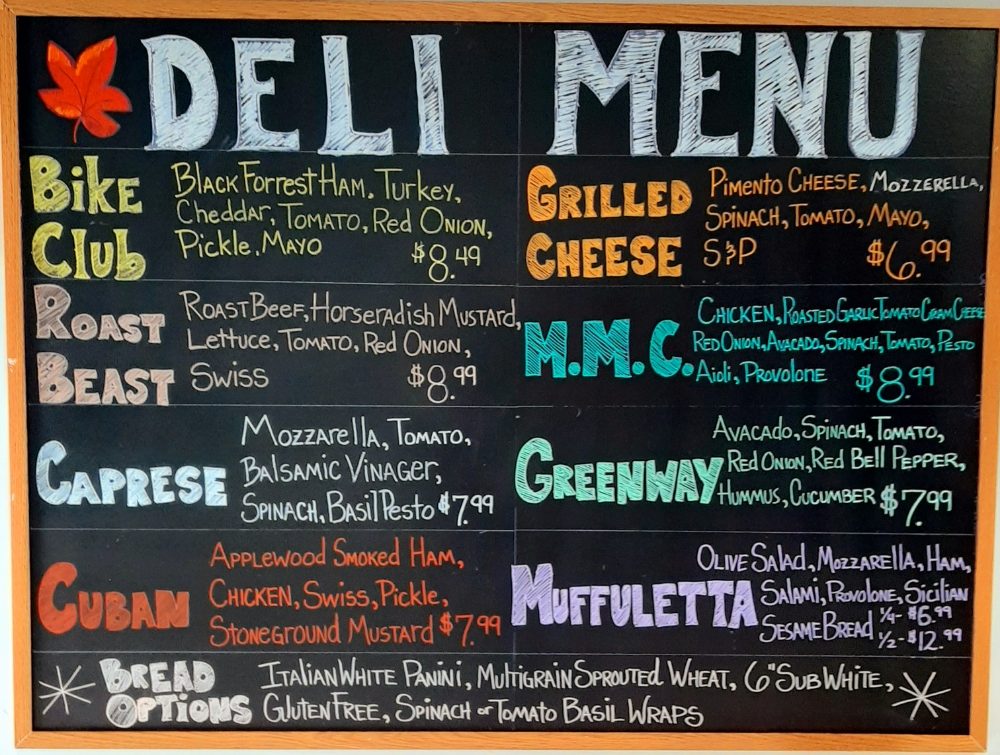 DELI MENU
Bike
Club
Black Forrest Ham, Turkey,
Cheddar, Tomato, Red Onion,
Pickle, Mayo $8.49
Grilled
Cheese
Pimento Cheese, Mozzerella,
Spinach, Tomato, Mayo,
S&P $6.99
Roast
Beast
Roast Beef, Horseradish Mustard,
Lettuce, Tomato, Red Onion,
Swiss $8.99
M.M.C.
Chicken, Roasted Garlic Tomato Cram Cheese
Red Onion, Avacado, Spinach, Tomato, Pesto
Aioli, Provolone $8.99
Caprese
Mozzarella, Tomato,
Balsamic Vinager,
Spinach, Basil Pesto $7.99
Greenway
Avacado, Spinach, Tomato,
Red Onion, Red Bell Pepper,
Hummus, Cucumber $7.99
Cuban
Applewood Smoked Ham,
Chicken, Swiss, Pickle,
Stoneground Mustard $7.99
Muffuletta
Olive Salad, Mozzarella, Ham,
Salami, Provolone, Sicilian
Sesame Bread 1/4 - $6.99
1/2 - $12.99
Bread
Options
Italian White Panini, Multigrain Sprouted Wheat, 6" Sub White,
Gluten Free, Spinach or Tomato Basil Wraps